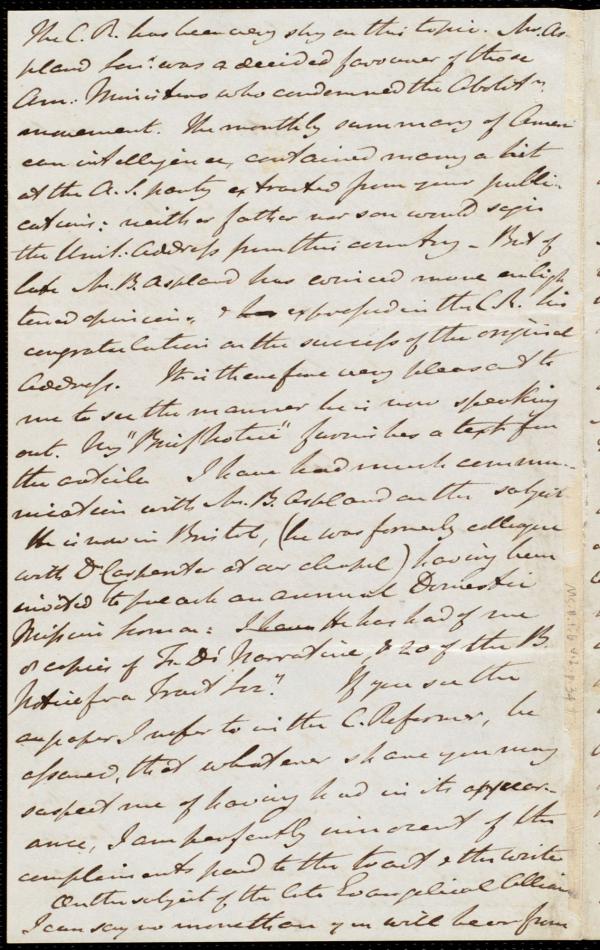 The C. R. has been very shy on this topic. Mr. As-
pland Senr. was a decided favourer of those
Am: Ministers who condemned the Abolitn.
movement. The monthly summary of Ameri
can intelligence, contained many a hit
at the A. S. party extracted from your publi-
cations; neither father nor son would sign
the Unit: Address from this country - But of
late Mr. B. Aspland has evinced more enligh
tened opinions, & has expressed in the C. R. his
congratulation on the success of the original
Address. It is therefore very pleasant to
me to see the manner he is now speaking
out. My "Brief Notice" furnishes a text for
the article I have had much commu-
nication with Mr. B. Aspland on the subject
He is now in Bristol, (he was formerly collegue
with Dr Carpenter at our chapel) having been
invited to preach an annual Domestic
Mission Sermon: I have He has had of me
copies of Fr. Ds' Narrative & 20 of the B.
Notice for a Tract Socy. If you see the
paper I refer to in the C. Reformer, be
assured, that whatever share you may
suspect me of having had in its appear-
ance, I am perfectly innocent of the
compliments paid to the tract & the writer
On the subject of the late Evangelical Allian
I can say no more than you will hear from